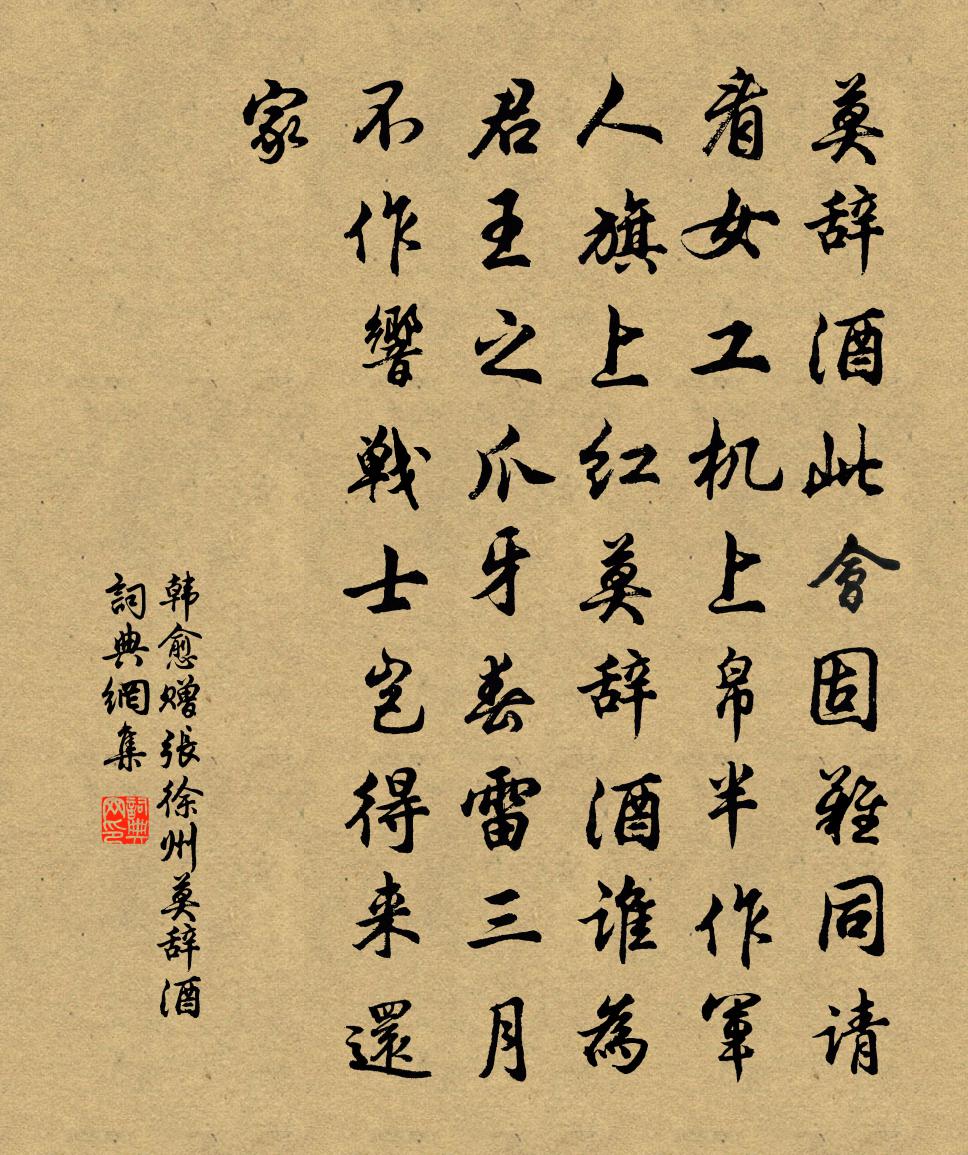 莫辞酒此會固難同请
看女工机上帛半作軍
人旗上红莫辞酒谁為
君王之爪牙春雷三月
不作響戦士岂得来還
家
韩愈赠張徐州莫辞酒
詞典網集
詞典网印